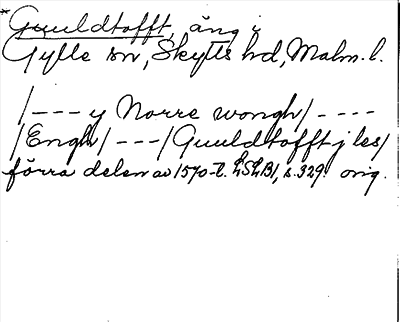 *Guuldtofft, äng i
Gylle sn, Skytts hd, Malm. l.
/--- y Norre wongh/ ----
/Engh/ ---/Guuldtofft j les/
förra delen av 1570-t. LSLB1, s. 329. orig.